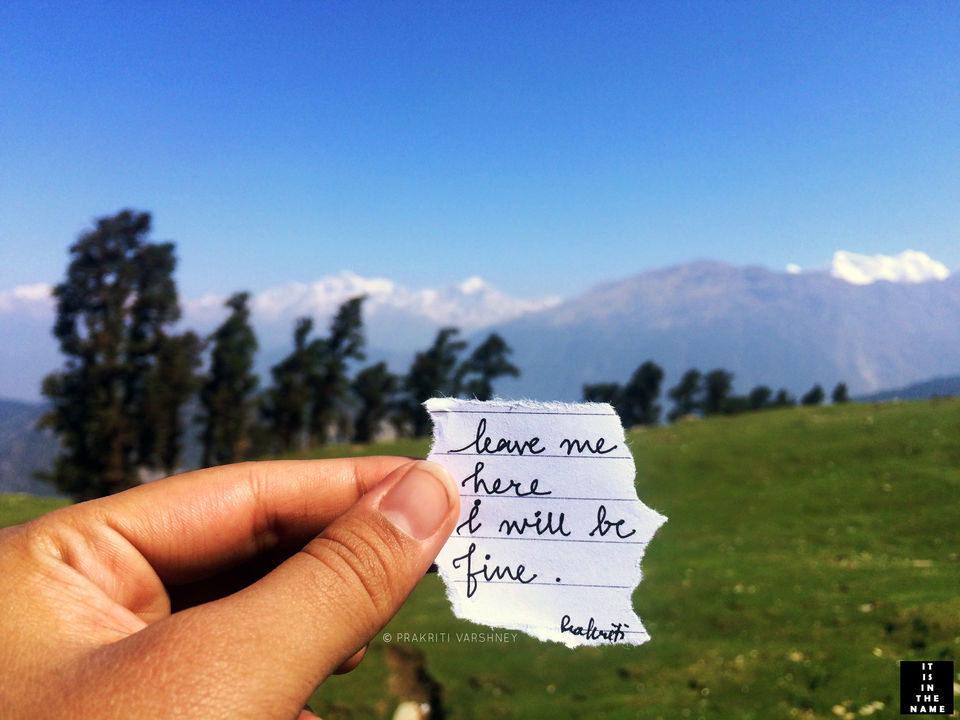 leave me
here
I will be
fine.
Prakriti
© PRAKRITI VARSHNEY
IT
IS
IN
THE
NAME